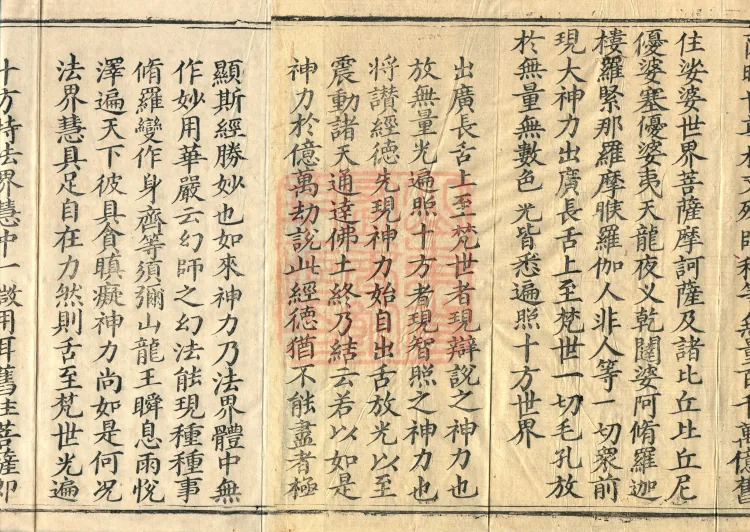 萬億舊
住娑婆世界菩薩摩訶薩及諸比丘比丘尼
優婆塞優婆夷天龍夜乂乾闥婆阿脩羅迦
樓羅緊那羅摩睺羅伽人非人等一切衆前
現大神力出廣長舌上至梵世一切毛孔放
於無量無數色光皆悉遍照十方世界
出廣長舌上至梵世者現辯說之神力也
放無量光遍照十方者現智照之神力也
將讃經德先現神力始自出舌放光以至
震動諸天通達佛土終乃結云若以如是
神力於億萬劫說此經德猶不能盡者極
顯斯經勝妙也如來神力乃法界體中無
作妙用華嚴云幻師之幻法能現種種事
脩羅變作身齊等須彌山龍王瞬息雨悅
澤遍天下彼具貪瞋癡神力尚如是何况
法界慧具足自在力然則舌至梵世光遍
十方特法界慧中一微用耳舊住菩薩即